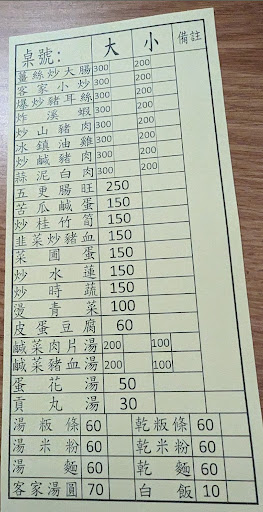 桌號: 大 小 備註
薑絲炒大腸 300 200
客家小炒 300 200
爆炒豬耳絲 300 200
炸溪蝦 300 200
炒山豬肉 300 200
冰鎮油雞 300 200
炒鹹豬肉 300 200
蒜泥白肉 300 200
五更腸旺 250
苦瓜鹹蛋 150
炒桂竹筍 150
韭菜炒豬血 150
菜圃蛋 150
炒水蓮 150
炒時蔬 150
燙青菜 100
皮蛋豆腐 60
鹹菜肉片湯 200 100
鹹菜豬血湯 200 100
蛋花湯 50
貢丸湯 30
湯粄條 60 乾粄條 60
湯米粉 60 乾米粉 60
湯麵 60 乾麵 60
客家湯圓 70 白飯 10